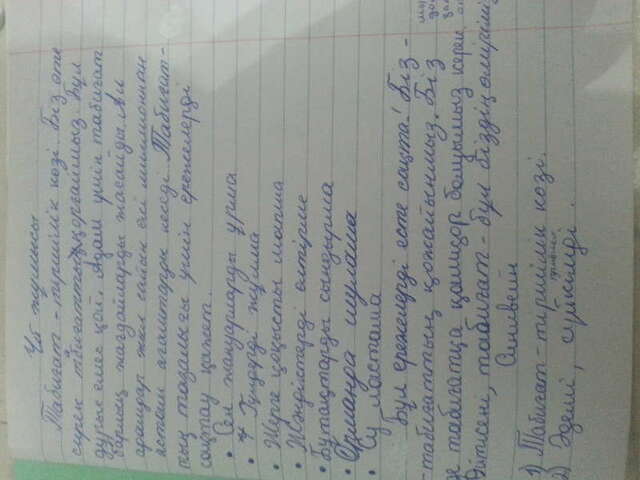 Үй жұмысы
Табиғат - тіршілік көзі. Біз өте
сирек табиғаттың қорғаймыз. Бұл
дұрыс емес қой. Адам үшін табиғат
барлық жағдайларды жасайды. Ал
адамдар жыл сайын екі миллионнан
астам ағаштарды кеседі. Табиғат-
тың тазалығы үшін ережелерді
сақтау қажет.
• Сен жануарларды ұрма
• Гүлдерді жұлма
• Жерге қоқысты тапша
• Жәндіктерді өлтірме
• Бұтақтарды сындырма
• Орманда шулаша
• Су ласташа
Бұл ережелерді есте сақта! Біз -
-табиғаттың қожайынмыз. Біз
де табиғатқа қамқор болуымыз керек.
Өйткені, табиғат - бұл біздің өміріміз
Синквейн
1) Табиғат - тіршілік көзі.
2) Әдемі, сүйкімді.